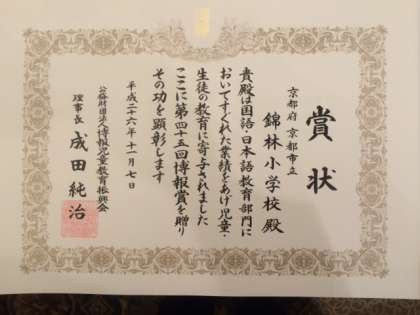 賞状
京都府 京都市立
錦林小学校殿
貴殿は国語・日本語教育部門に
おいてすぐれた業績をあげ児童・
生徒の教育に寄与されました
ここに第四十五回博報賞を贈り
その功を顕彰します
平成二十六年十一月七日
公益財団法人博報児童教育振興会
理事長 成田純治